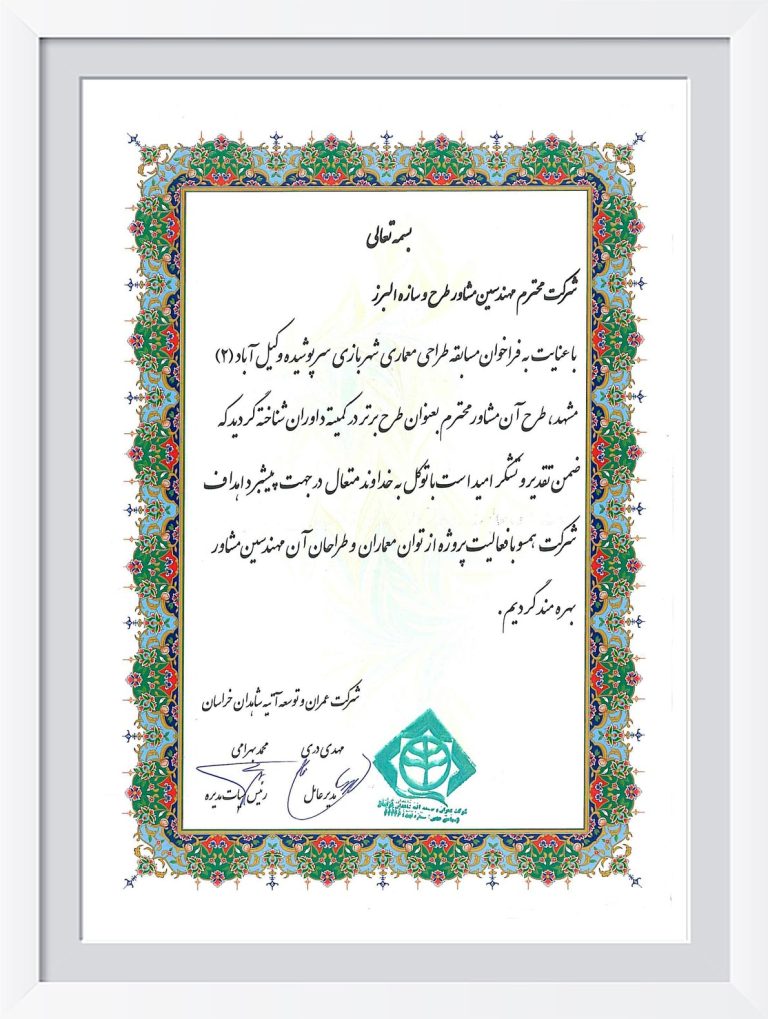 بسمه تعالی
شرکت محترم مهندسین مشاور طرح و سازه البرز
با عنایت به فراخوان مسابقه طراحی معماری شهربازی سرپوشیده وکیل آباد (۲)
مشهد، طرح آن مشاور محترم بعنوان طرح برتر در کمیته داوران شناخته گردید که
ضمن تقدیر و تشکر امید است با توکل به خداوند متعال در جهت پیشبرد اهداف
شرکت همسو با فعالیت پروژه از توان معماران و طراحان آن مهندسین مشاور
بهره مند گردیم.
شرکت عمران و توسعه آتیه شاهدان خراسان
مهدی دری محمد بهرامی
مدیر عامل رئیس هیات مدیره
شرکت عمران و توسعه آتیه شاهدان خراسان